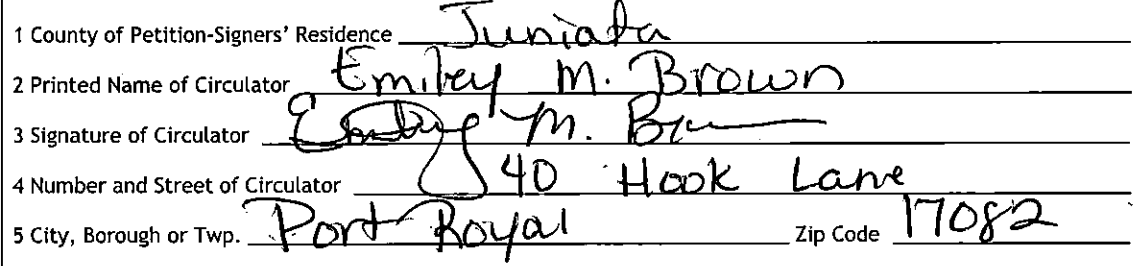 1 County of Petition-Signers' Residence Juniata
2 Printed Name of Circulator Emiley M. Brown
3 Signature of Circulator Emiley M. Br
4 Number and Street of Circulator 40 Hook Lane
5 City, Borough or Twp. Port Royal Zip Code 17082